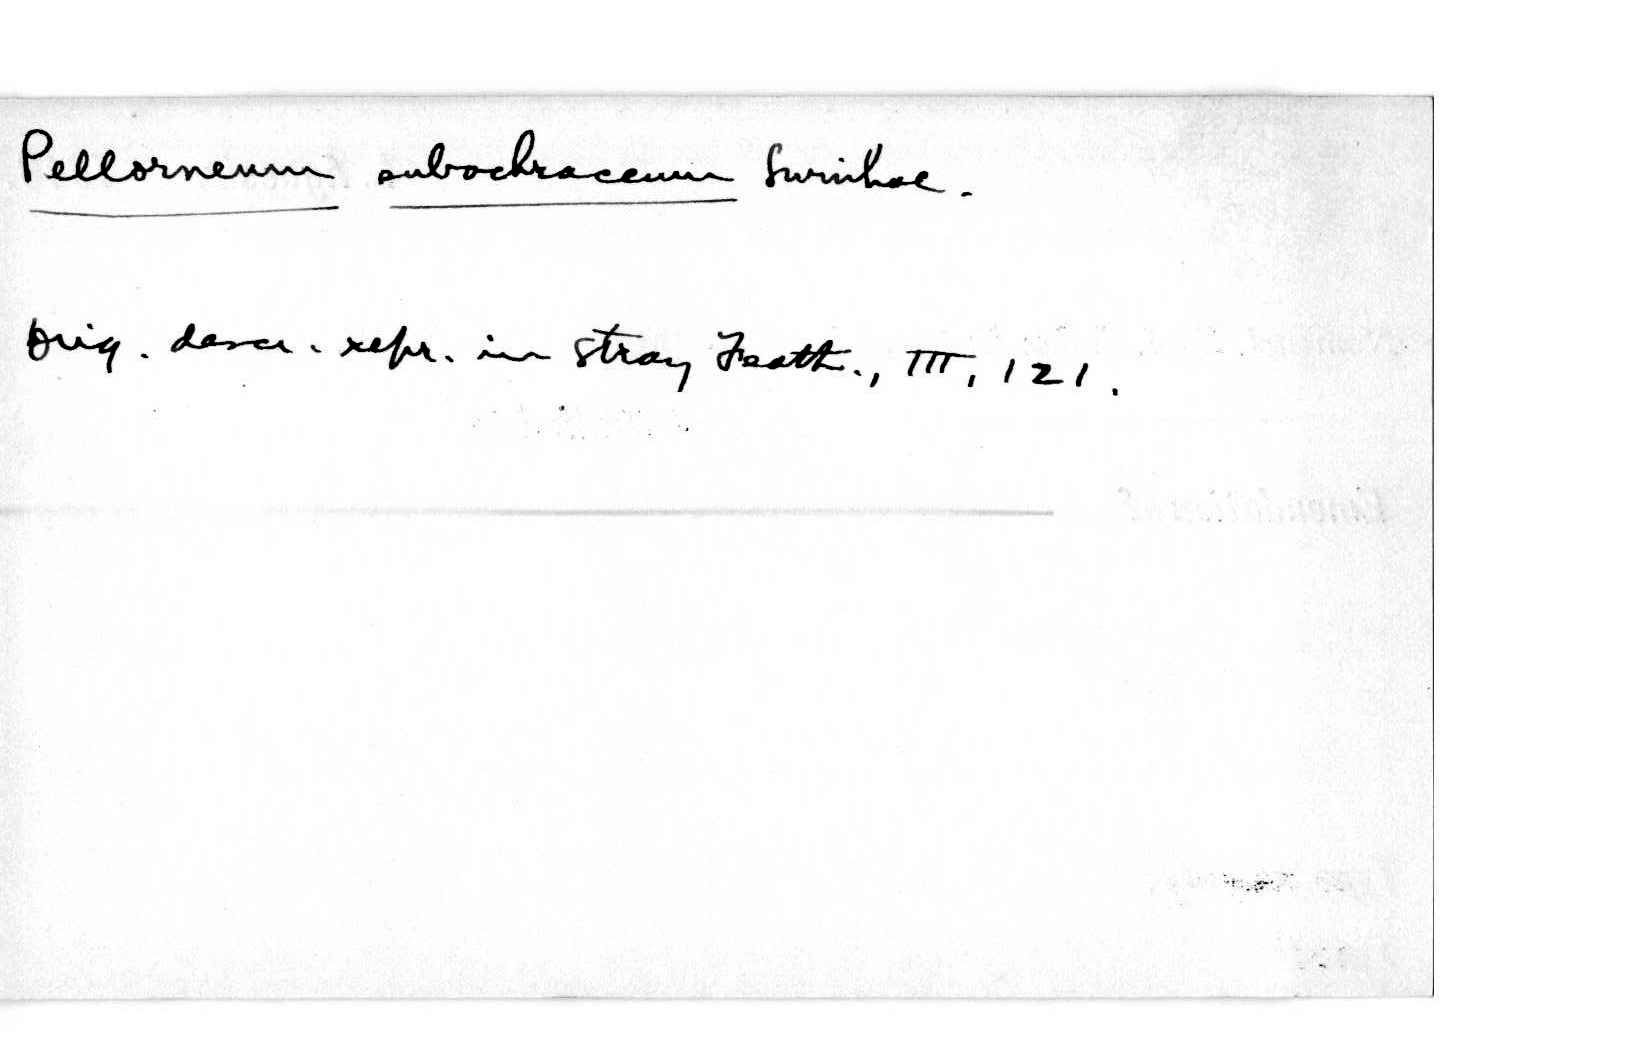 Pellorneum subochraceum Swinhoe.
Orig. descr. repr. in Stray Feath., III, 121.